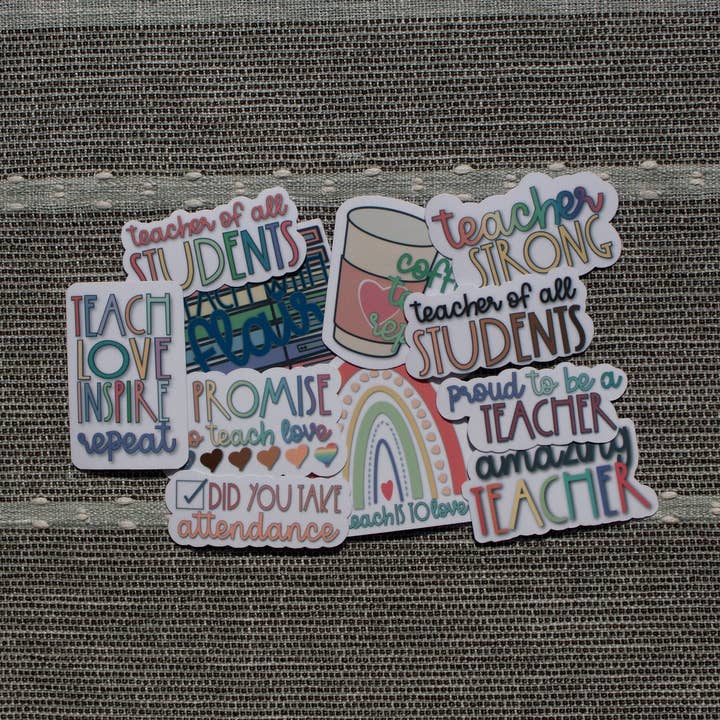 teacher of all
STUDENTS
teacher
STRONG
TEACH
LOVE
INSPIRE
repeat
flair
teacher of all
STUDENTS
PROMISE
to teach love
proud to be a
TEACHER
amazing
TEACHER
DID YOU TAKE
attendance
teach IS TO love